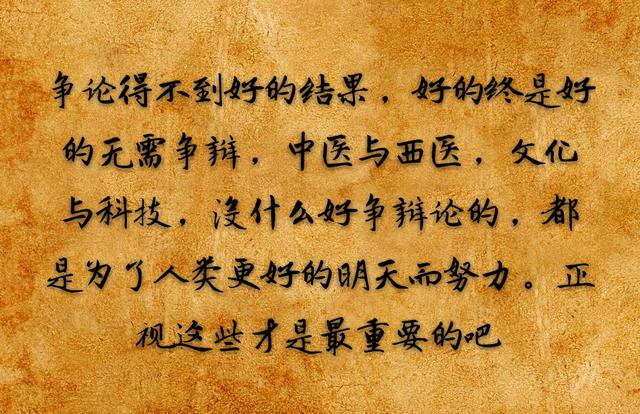 争论得不到好的结果，好的终是好
的无需争辩，中医与西医，文化
与科技，没什么好争辩论的，都
是为了人类更好的明天而努力。正
视这些才是最重要的吧